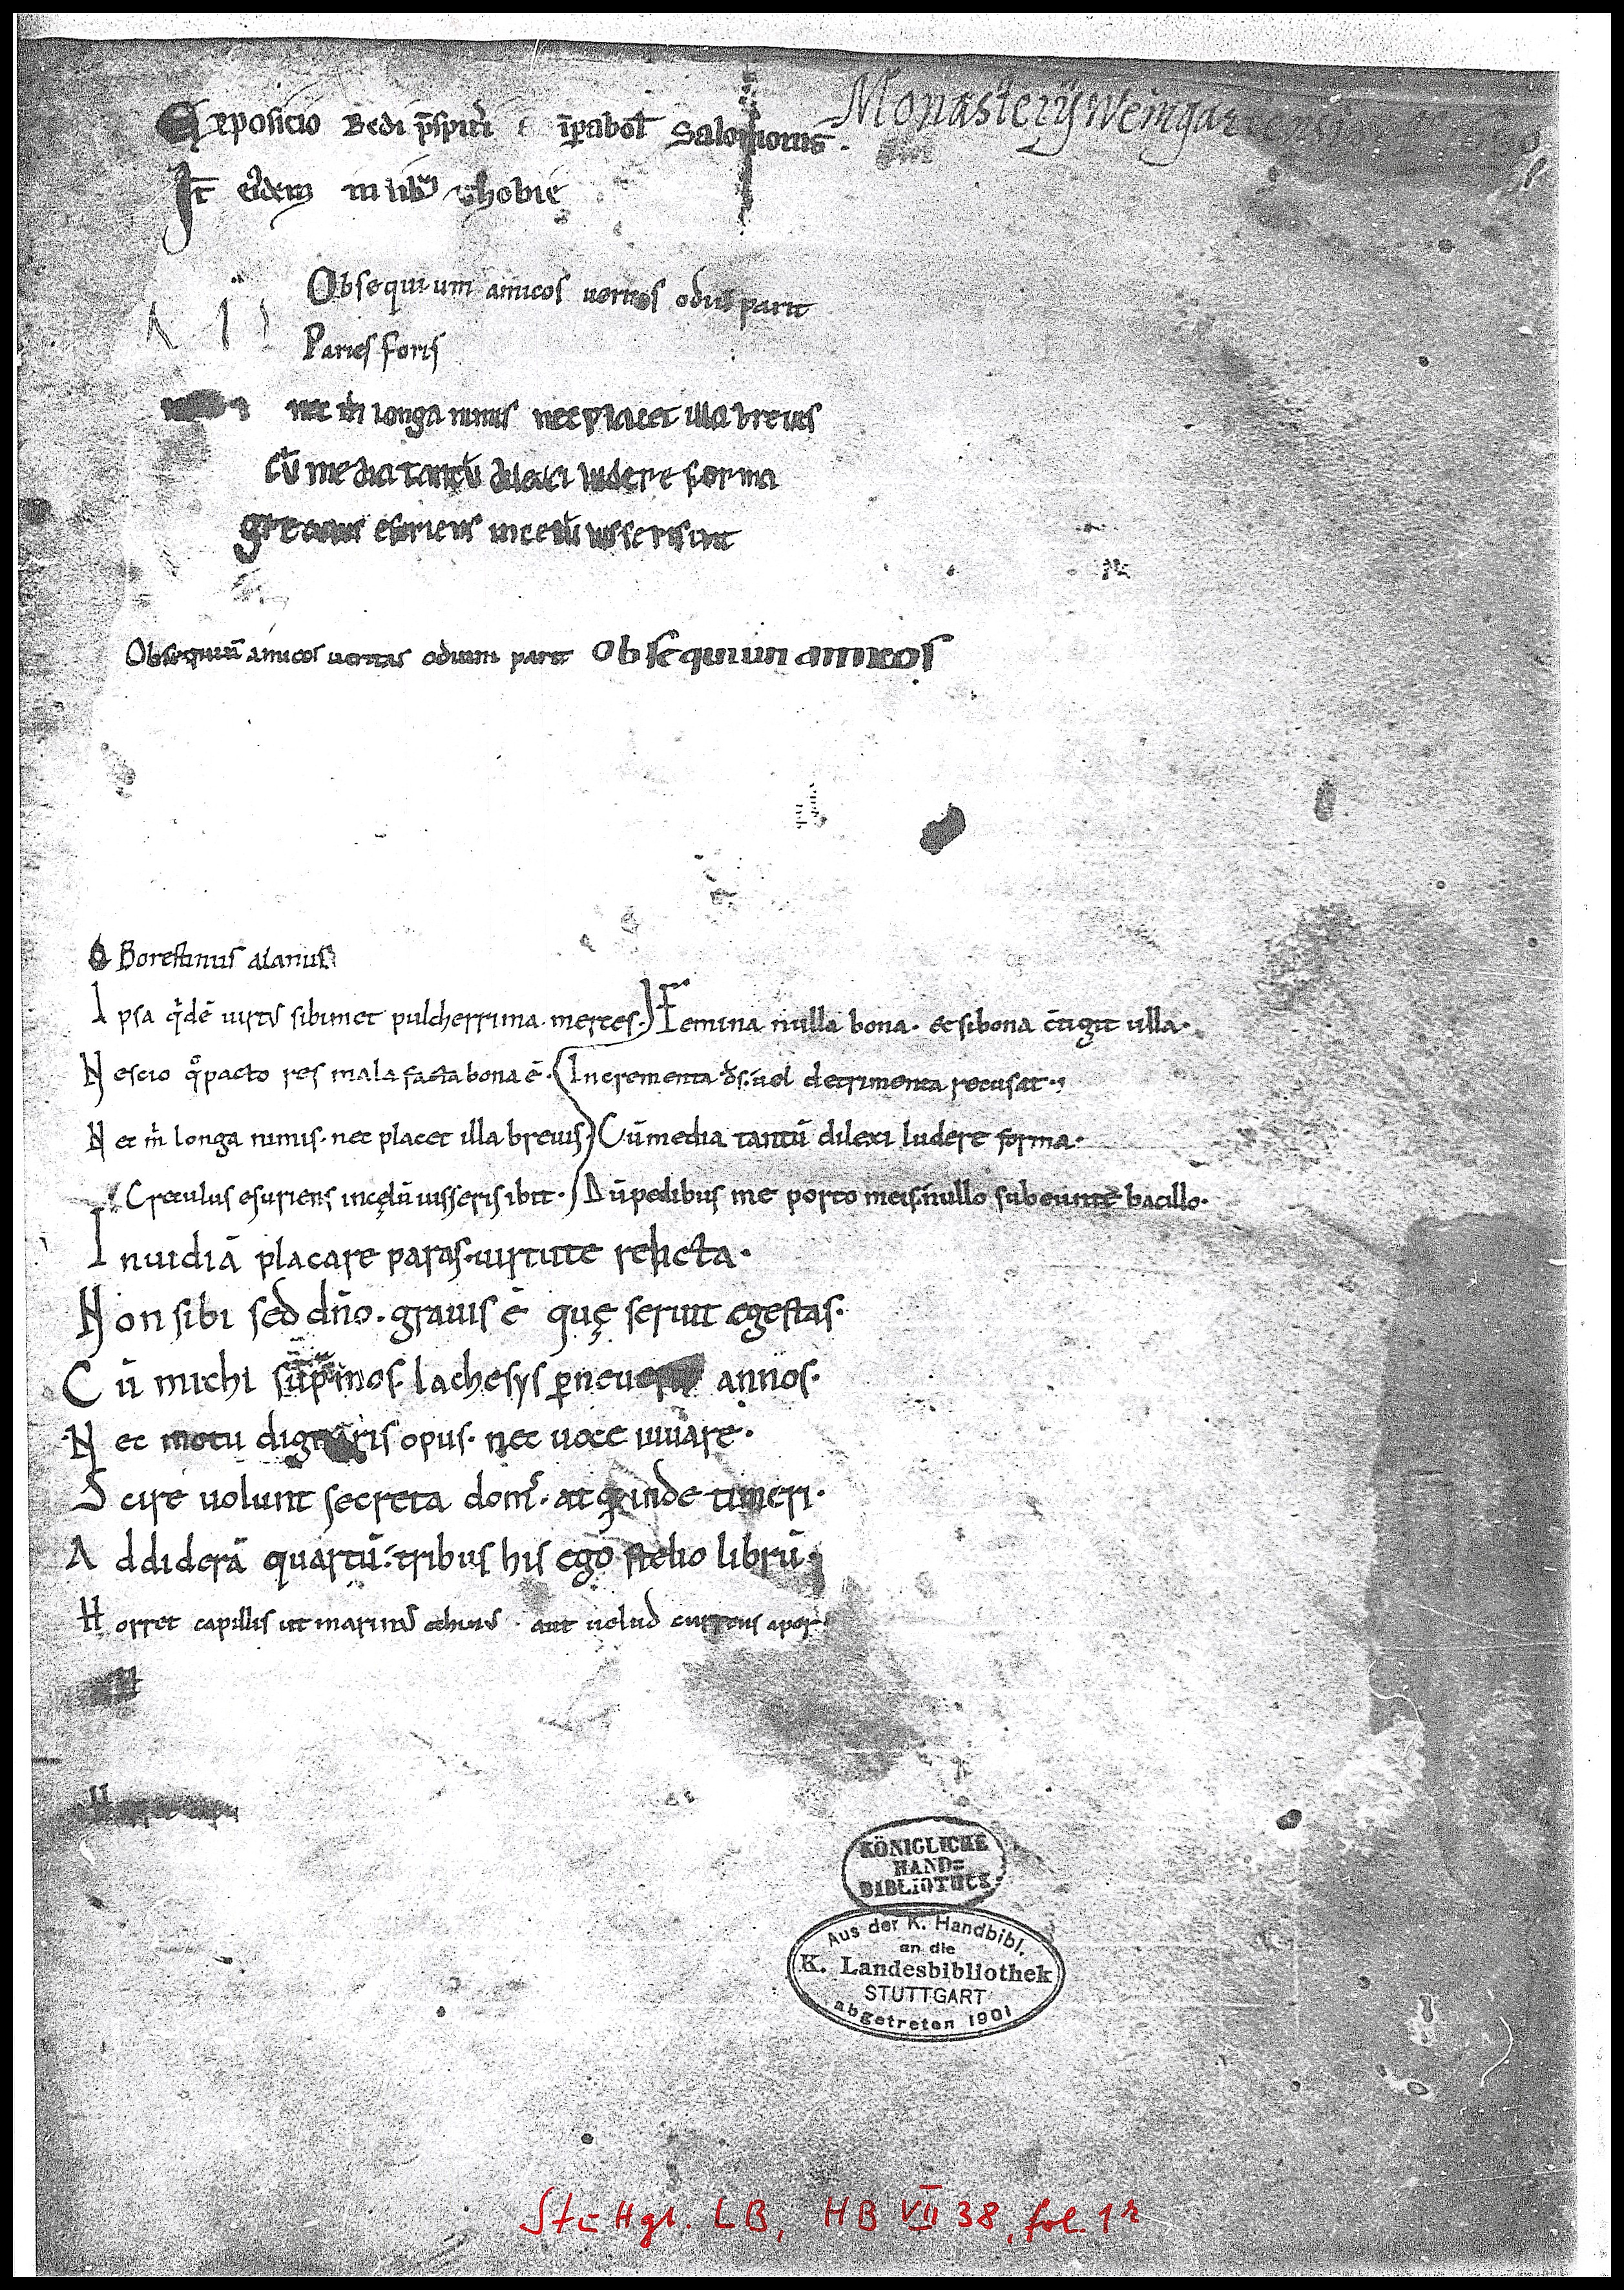 Exposicio Bedi p̄spit̄i ī p̄abol̄ Salomonis.
Monasterÿ Weingar
It̄ eiͥdem in libͬ thobie
Obsequium amicos ueritas odiū parit
Paries foris
nec m̄ longa nimis nec placet illa breuis
cū media tantū dilexi ludere forma
greculus esuriens in celū iusseris ibit
Obsequiū amicos ueritas odium parit Obsequium amicos
Borestinus alanus
Ipsa qͥdē uirtus sibimet pulcherrima merces. Femina nulla bona. et si bona c̄tigit ulla.
Nescio qͦ pacto res mala facta bona ē. Incrementa d̄s. uel detrimenta recusat.
Nec m̄ longa nimis. nec placet illa breuis Cū media tantū dilexi ludere forma.
Greculus esuriens in cęlū iusseris ibit. Dū pedibus me porto meis. nullo subeunte bacillo.
Inuidiā placare paras. uirtute relicta.
Non sibi sed dn̄o. grauis ē quę seruit egestas.
Cū michi sup̄mos. lachesys ꝑneuerit annos.
Nec motu dignaris opus. nec uoce iuuare.
Scire uolunt secreta dom͛. atq; inde timeri.
Addiderā quartū. tribus his ego stelio librū.
Horret capillis ut marinus echinus. aut uelud currens aper
KÖNIGLICHE
HAND=
BIBLIOTHEK
Aus der K. Handbibl.
an die
K. Landesbibliothek
STUTTGART
abgetreten 1901
Stuttgt. LB, HB VII 38, fol. 1r